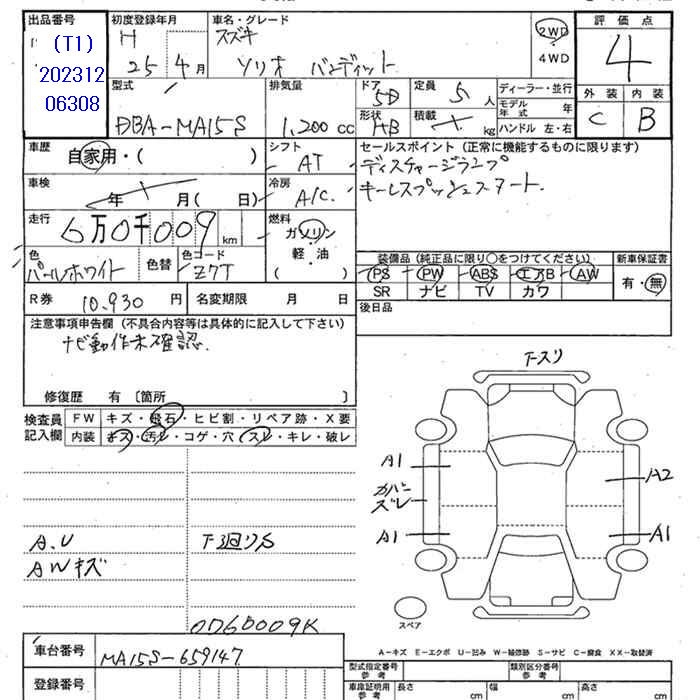 出品番号 初度登録年月 車名・グレード 評価点
(T1) H スズキ 2WD
202312 25年4月 ソリオ バンディット 4WD 4
06308 型式 排気量 ドア 5D 定員 5人 ディーラー・並行 外装 内装
DBA-MA15S 1,200cc 形状 HB 積載 kg モデル年式 年 C B
ハンドル 左・右
車歴 自家用・( ) シフト AT セールスポイント (正常に機能するものに限ります)
ディスチャージランプ
車検 年 月( 日) 冷房 A/C キーレスプッシュスタート.
走行 6万0千009km 燃料 ガソリン
軽・油
( )
色 パールホワイト 色替 色コード Z7T 装備品(純正品に限り○をつけてください) 新車保証書
PS PW ABS エアB AW 有・無
R券 10,930円 名変期限 月 日 SR ナビ TV カワ
後日品
注意事項申告欄(不具合内容等は具体的に記入して下さい)
ナビ動作未確認.
修復歴 有〔箇所 〕
検査員 FW キズ・飛石・ヒビ割・リペア跡・X要
記入欄 内装 キズ・汚レ・コゲ・穴・スレ・キレ・破レ
下スリ
A1 A2
カバーズレ
A1 A1
A.U 下廻りS
AWキズ
スペア
0D60009K
A-キズ E-エクボ U-凹み W-補修跡 S-サビ C-腐食 XX-取替済
車台番号 MA15S-659147
型式指定番号 参考 類別区分番号 参考
登録番号 車庫証明用 参考 長さ cm 幅 cm 高さ cm